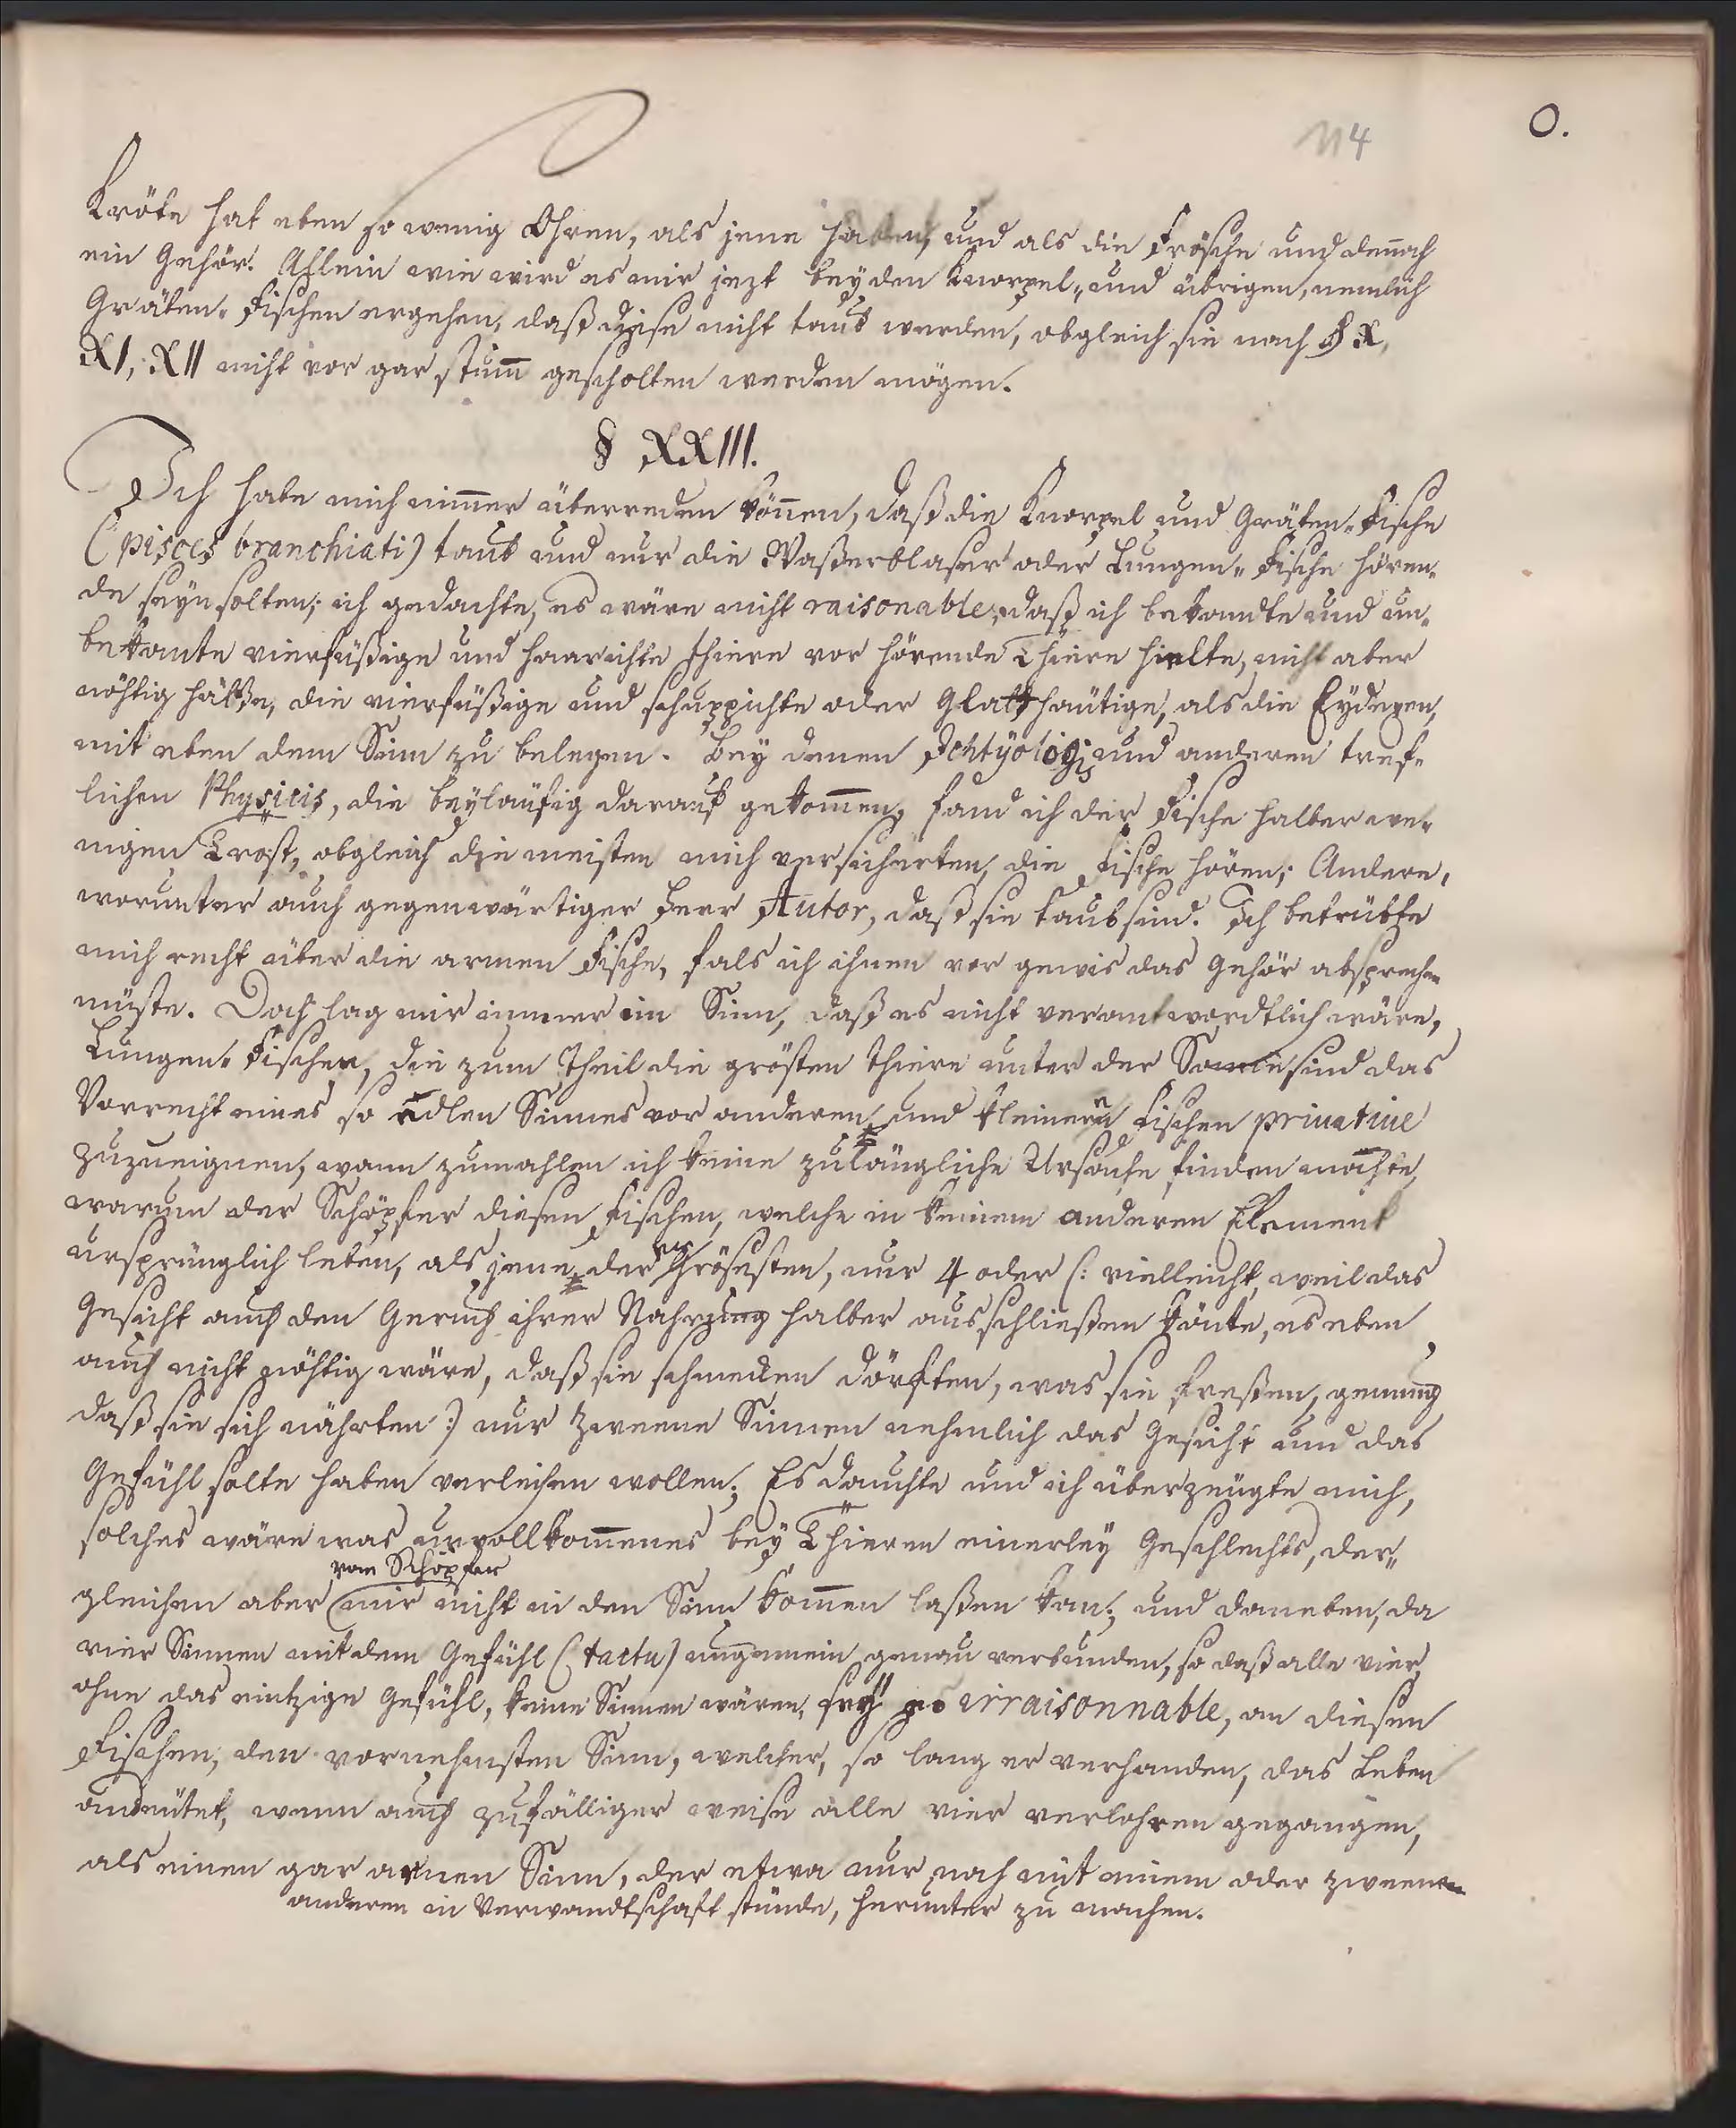 114
O.
Kröte hat eben so wenig Ohren, als jene haben, und als die Frösche und dennoch
ein Gehör. Allein wie wird es mir jezt bey den Knorpel- und übrigen, nemlich
Gräten-Fischen ergehen, daß diese nicht taub werden, obgleich sie nach § X,
XI, XII nicht vor gar stum̅ gescholten werden mögen.
§ XXIII.
Ich habe mich nim̅er überreden kön̅en, daß die Knorpel und Gräten-Fische
(pisces branchiati) taub und nur die Waßerblaser oder Lungen-Fische hören-
de seyn solten; ich gedachte, es wäre nicht raisonable, daß ich bekandte und un-
bekante vierfüßige und haarichte Thiere vor hörende Thiere hielte, nicht aber
nöhtig hätte, die vierfüßige und schuppichte oder Glatthäutige, als die Eydexen,
mit eben dem Sinn zu belegen. Bey denen Ichtÿologis und anderen tref-
lichen Physicis, die beyläufig darauf gekom̅en, fand ich der Fische halber we-
nigen Trost, obgleich die meisten mich versicherten, die Fische hören; Andere,
worunter auch gegenwärtiger Herr Autor, daß sie taub sind. Ich betrübte
mich recht über die armen Fische, fals ich ihnen vor gewis das Gehör absprechen
müste. Doch lag mir immer im Sinn, daß es nicht verantwordtlich wäre,
Lungen-Fischen, die zum Theil die grösten Thiere unter der Sonne sind das
Vorrecht eines so edlen Sinnes vor anderen und kleinern Fischen privative
zuzueignen, wann zumahlen ich keine zulängliche Ursache finden mochte,
warum der Schöpfer diesen Fischen, welche in keinem anderen Element
ursprünglich leben, als jene der Grösesten, nur 4 oder (: vielleicht, weil das
Gesicht auch den Geruch ihrer Nahrung halber ausschließen könte, es eben
auch nicht nöhtig wäre, daß sie schmecken dörften, was sie freßen, genung,
daß sie sich nährten :) nur zweene Sinnen nehmlich das Gesicht und das
Gefühl solte haben verleihen wollen; Es dauchte und ich überzeugte mich,
solches wäre was unvollkom̅enes bey Thieren einerley Geschlechts, der-
vom Schöpfer
gleichen aber mir nicht in den Sinn kom̅en laßen kan; und daneben, da
vier Sinnen mit dem Gefühl (tactu) ungemein genau verbunden, so daß alle vier
ohne das eintzige Gefühl, keine Sinnen wären, sey es irraisonnable, an diesen
Fischen, den vornehmsten Sinn, welcher, so lang er verhanden, das Leben
andeutet, wenn auch zufälliger weise alle vier verlohren gegangen,
als einen gar armen Sinn, der etwa nur noch mit einem oder zweenen
anderen in Verwandtschaft stünde, herunter zu machen.